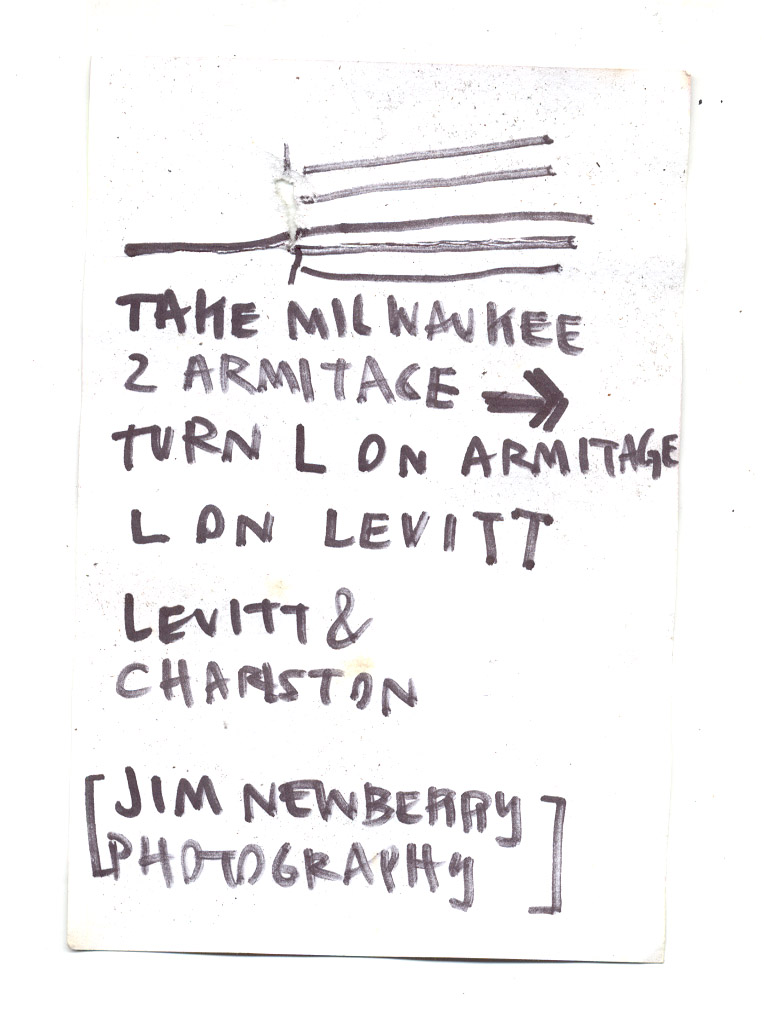 TAKE MILWAUKEE
2 ARMITAGE →
TURN L ON ARMITAGE
L ON LEVITT
LEVITT &
CHARLSTON
[JIM NEWBERRY
PHOTOGRAPHY]